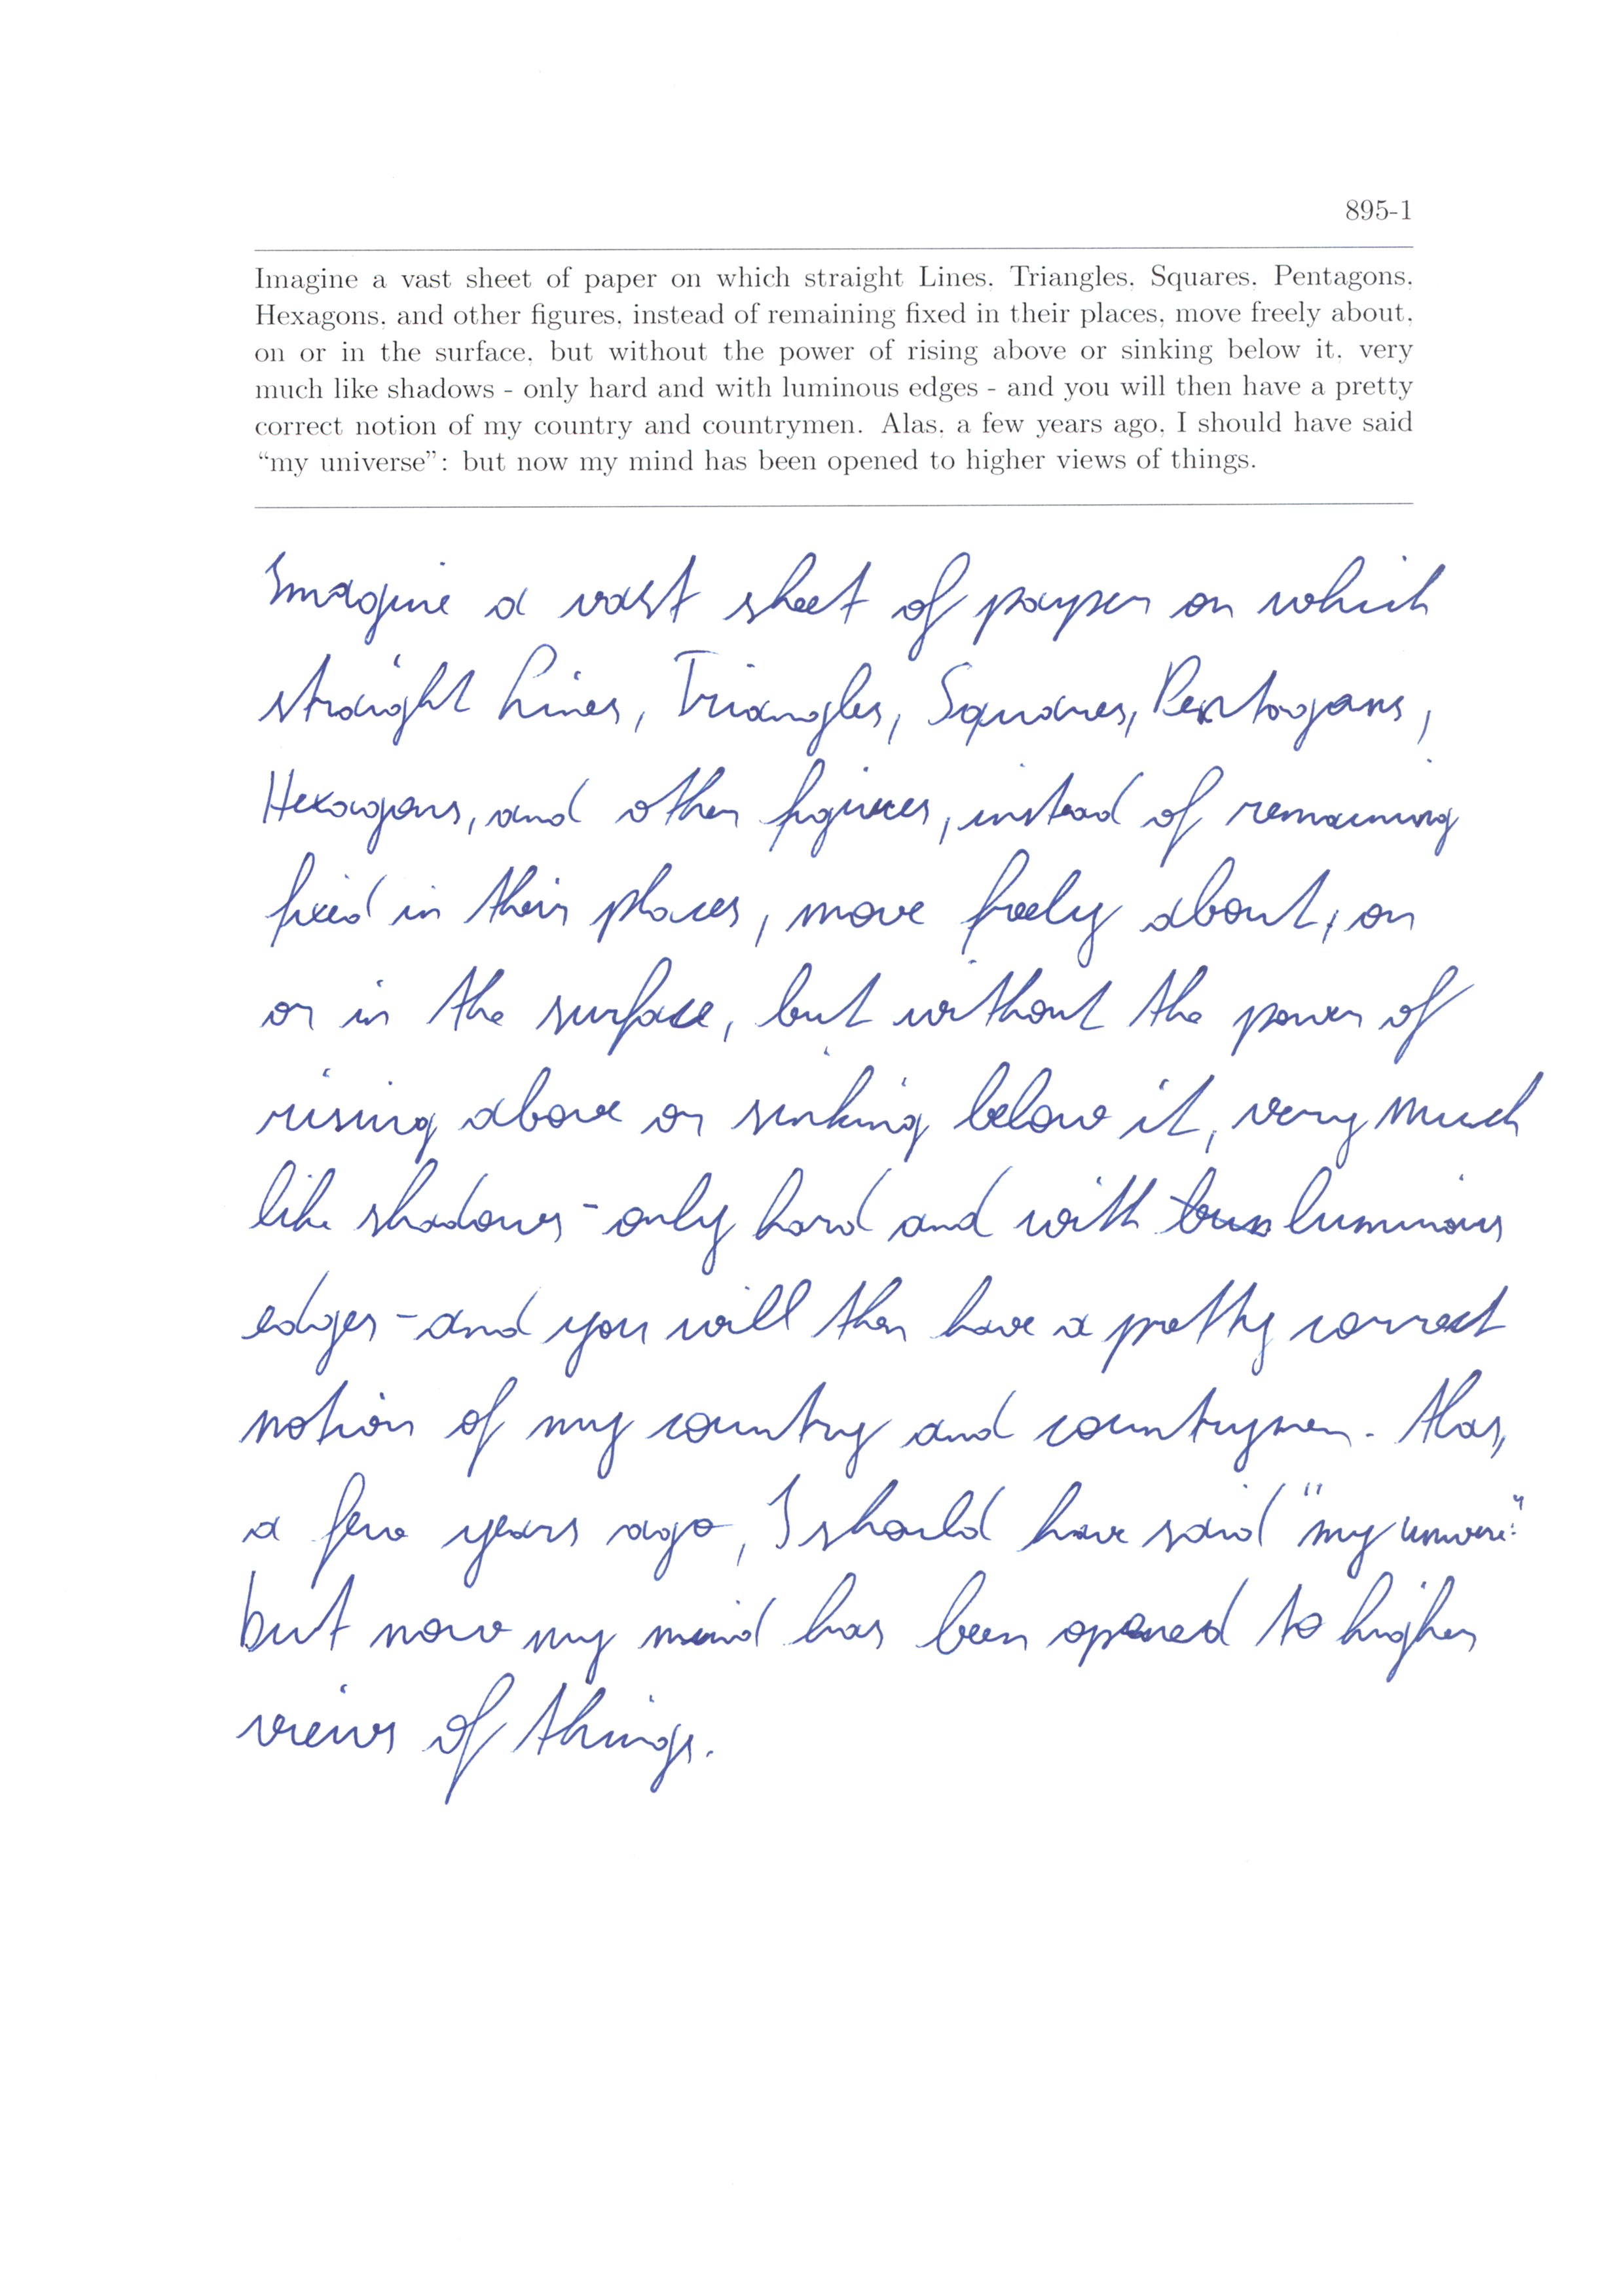 895-1
Imagine a vast sheet of paper on which straight Lines, Triangles, Squares, Pentagons,
Hexagons, and other figures, instead of remaining fixed in their places, move freely about,
on or in the surface, but without the power of rising above or sinking below it, very
much like shadows - only hard and with luminous edges - and you will then have a pretty
correct notion of my country and countrymen. Alas, a few years ago, I should have said
“my universe”: but now my mind has been opened to higher views of things.
Imagine a vast sheet of paper on which
straight Lines, Triangles, Squares, Pentagons,
Hexagons, and other figures, instead of remaining
fixed in their places, move freely about, on
or in the surface, but without the power of
rising above or sinking below it, very much
like shadows - only hard and with luminous
edges - and you will then have a pretty correct
notion of my country and countrymen. Alas,
a few years ago, I should have said "my
but now my mind has been opened to higher
views of things.